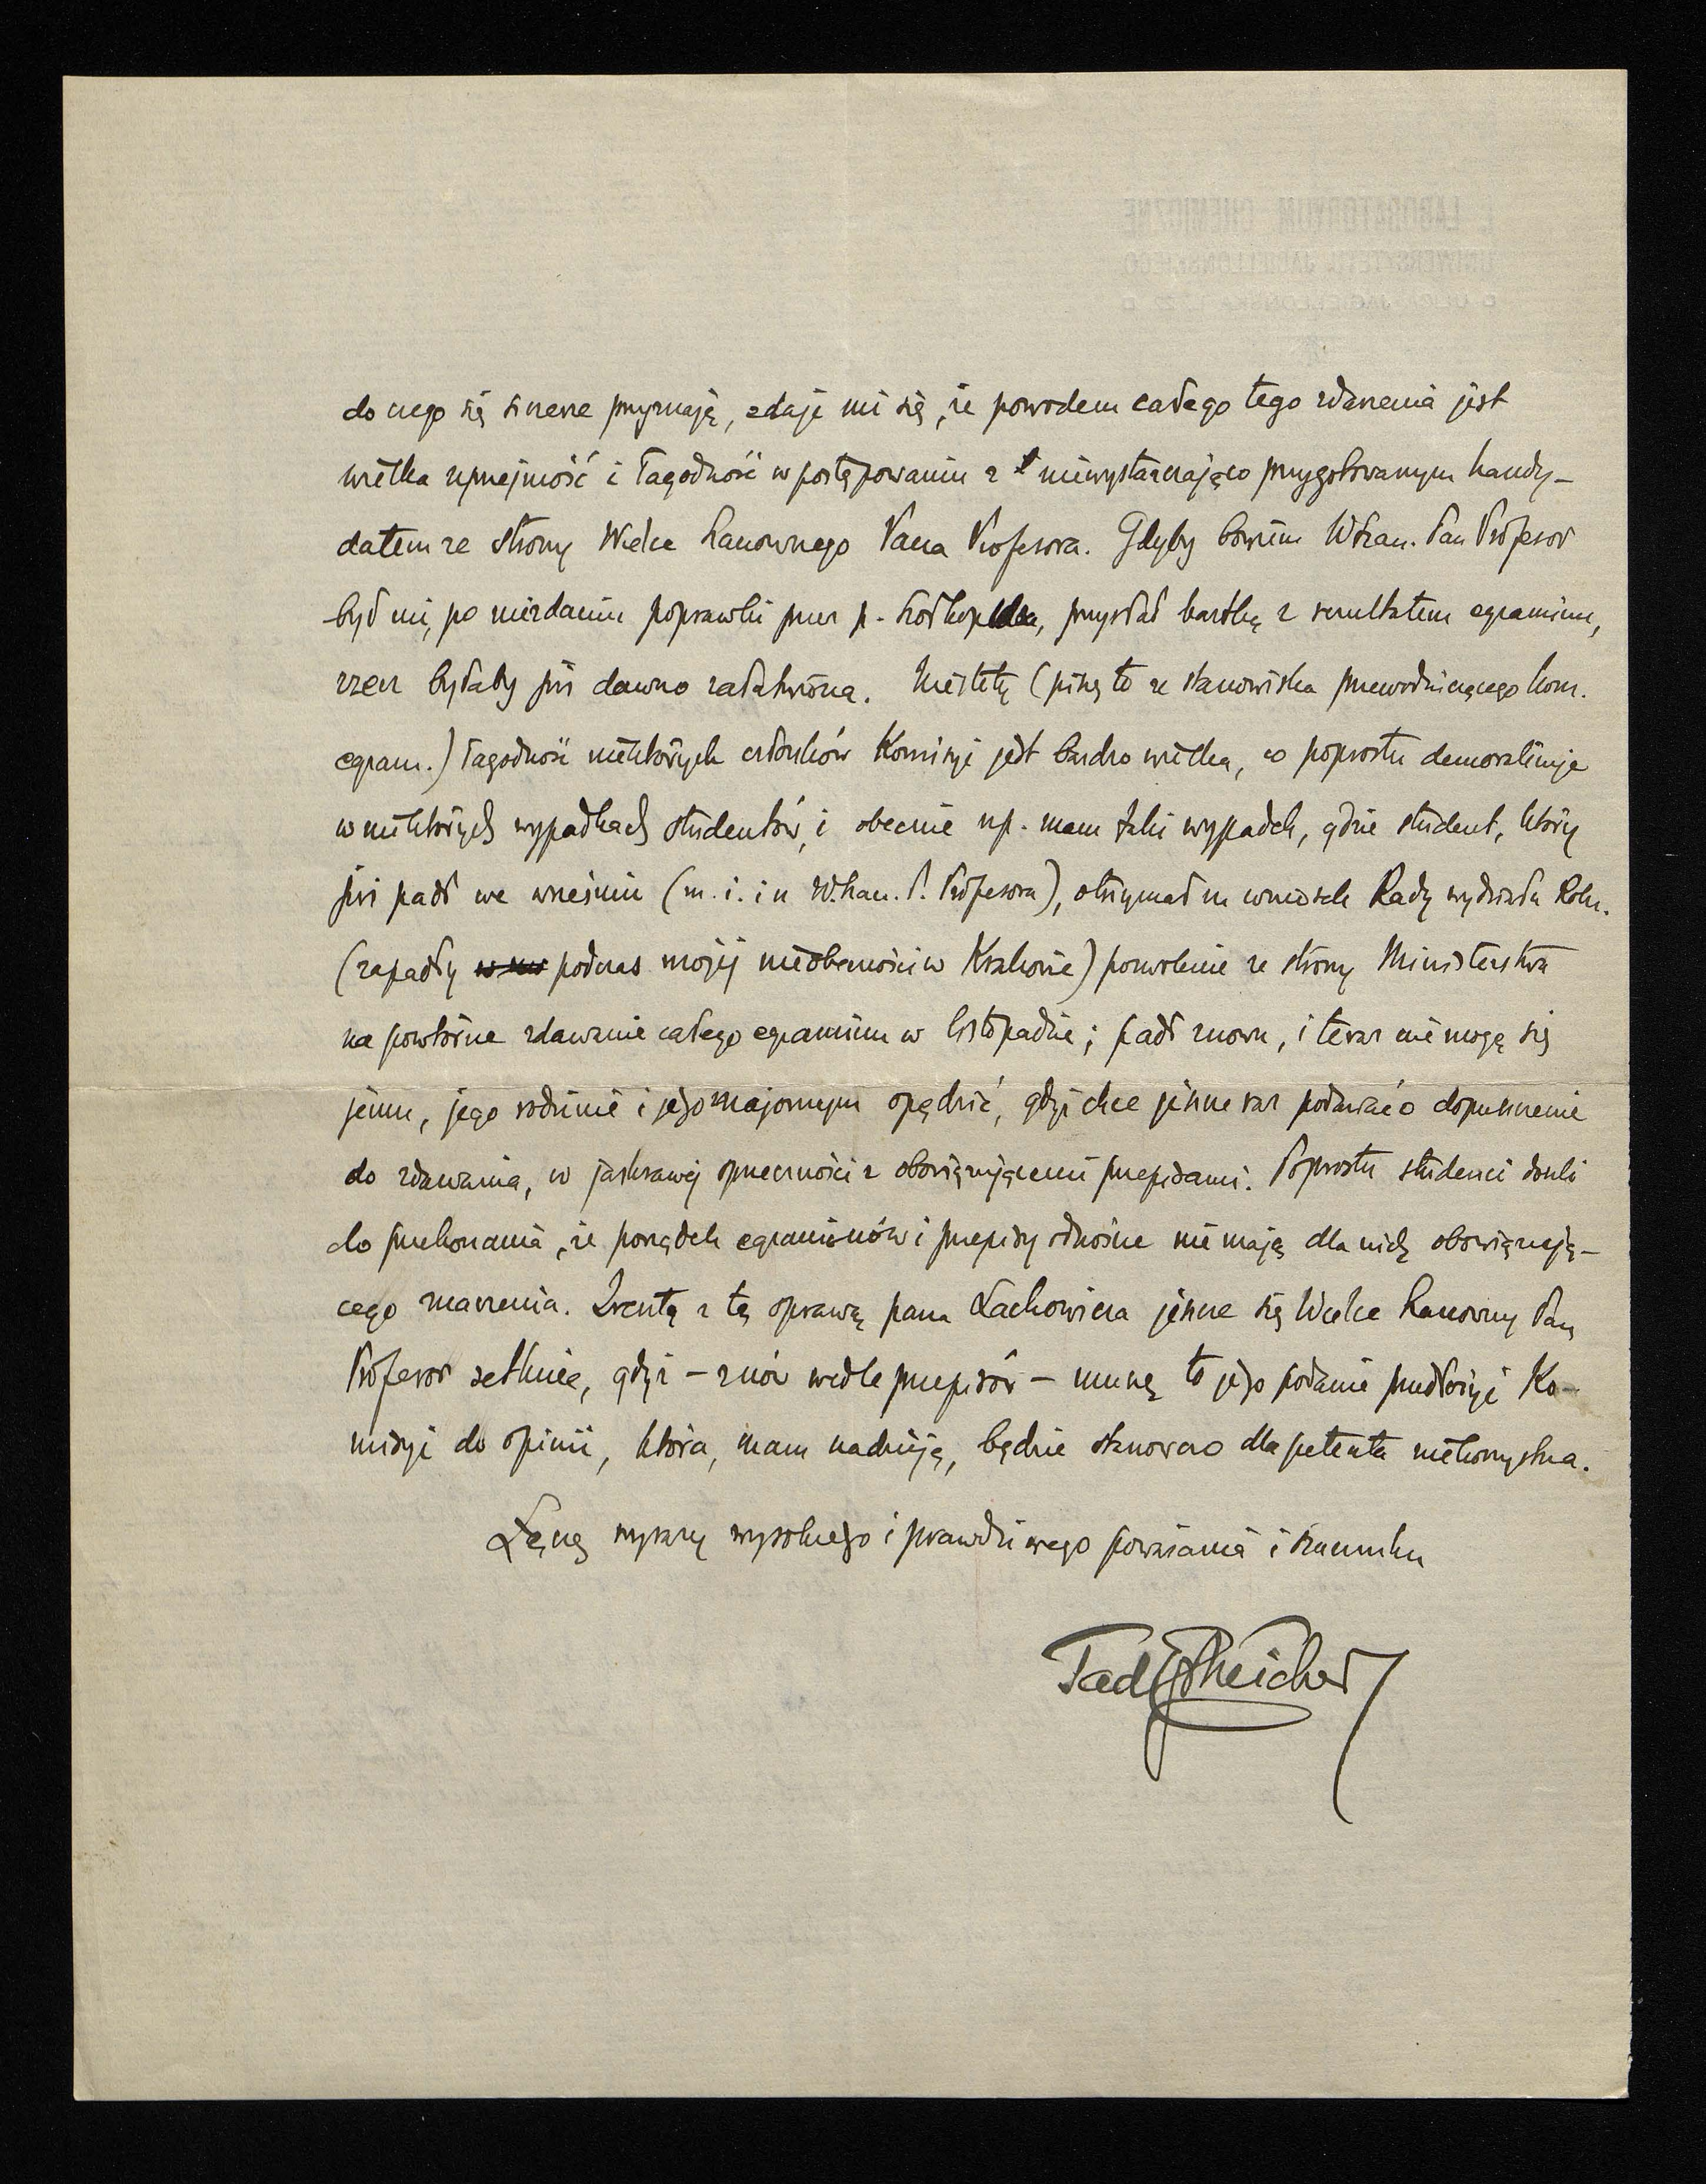 do czego się szczerze przyznaję, zdaje mi się, że powodem całego tego zdarzenia jest
wielka uprzejmość i łagodność w postępowaniu z niewystarczająco przygotowanym kandy-
datem ze strony Wielce Szanownego Pana Profesora. Gdyby bowiem WSzan. Pan Profesor
był mi, po niezdaniu poprawki przez p. przysłał kartkę z rezultatem egzaminu,
rzecz byłaby już dawno załatwiona. Niestety (piszę to ze stanowiska przewodniczącego kom.
egzam.) łagodność niektórych członków Komisyi jest bardzo wielka, co poprostu demoralizuje
w niektórych wypadkach studentów, i obecnie np. mam taki wypadek, gdzie student, który
już padł we wrześniu (m. i. i u W.Szan. P. Profesora), otrzymał na wniosek Rady wydziału Roln.
(zapadły podczas mojej nieobecności w Krakowie) pozwolenie ze strony Ministerstwa
na powtórne zdawanie całego egzaminu w listopadzie; padł znowu, i teraz nie mogę się
jemu, jego rodzinie i jego znajomym opędzić, gdyż chce jeszcze raz podawać o dopuszczenie
do zdawania, w jaskrawej sprzeczności z obowiązującemi przepisami. Poprostu studenci doszli
do przekonania, że porządek egzaminów i przepisy odnośne nie mają dla nich obowiązują-
cego znaczenia. Zresztą z tą sprawą pana Lachowicza jeszcze się Wielce Szanowny Pan
Profesor zetknie, gdyż – znów wedle przepisów – muszę to jego podanie przedłożyć Ko-
misyi do opinii, która, mam nadzieję, będzie stanowczo dla petenta niekorzystna.
Łączę wyrazy wysokiego i prawdziwego poważania i szacunku
Tad Estreicher
LABORATORYUM CHEMICZNE
UNIWERSYTETU JAGIELLOŃSKIEGO